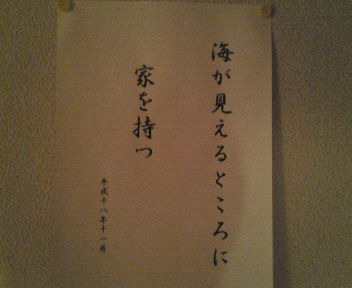 海が見えるところに
家を持つ
平成十八年十一月